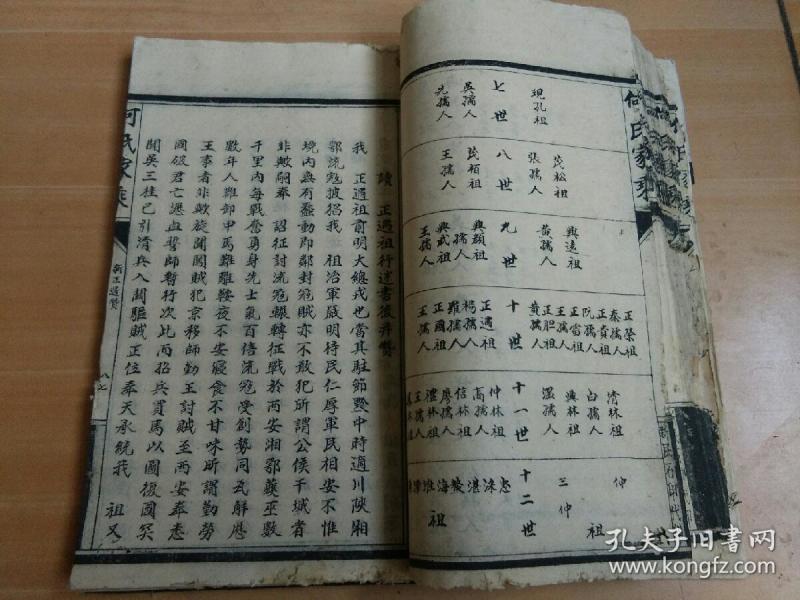 何氏家乘
七世
現孔祖
吳孺人
先孺人
八世
茂松祖
張孺人
茂栢祖
王孺人
九世
興遠祖
黃孺人
興顏祖
孺人
興武祖
王孺人
十世
正榮祖
秦孺人
正貴祖
阮孺人
正富祖
王孺人
正胆祖
黃孺人
正遇祖
楊孺人
羅孺人
正國祖
王孺人
十一世
清林祖
白孺人
興林祖
溫孺人
仲林祖
高孺人
信林祖
廖孺人
禮林祖
王孺人
十二世
仲
三仲
祖
讀 正遇祖行述書後并贊
我 正過祖前明大總戎也當其駐節黔中時適川陝湘
鄂流寇披猖我 祖治軍嚴明待民仁厚軍民相安不惟
境內無有蠢動即鄰封寇賊亦不敢犯所謂公侯干城者
非歟嗣奉 詔征討流寇輾轉征戰於兩安湘鄂蘷巫數
千里內每戰奮身先士氣百倍流寇受創勢同瓦解歷
數年人難卸甲馬難離鞍夜不安寢食不甘味所謂勤勞
王事者非歟旋聞闖賊犯京移師勤王討賊至西安奉悉
國破君亡憑血誓師暫行次此而招兵買馬以圖復國冥
聞吳三桂已引清兵入關驅賊正位奉天承統我 祖又
何氏家乘
八七
孔夫子旧书网
www.kongfz.com